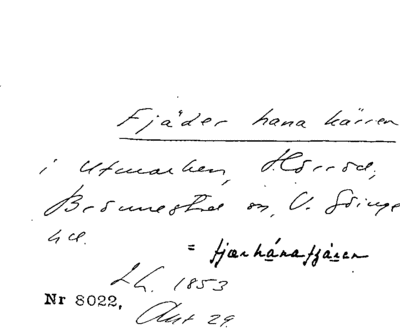 Fjäder hana kärren
i Utmarken, Horröd,
Brönnestad sn, V. Göinge
hd.
= fjærhánatjáren
Lh. 1853
Nr 8022,
Akt 29.